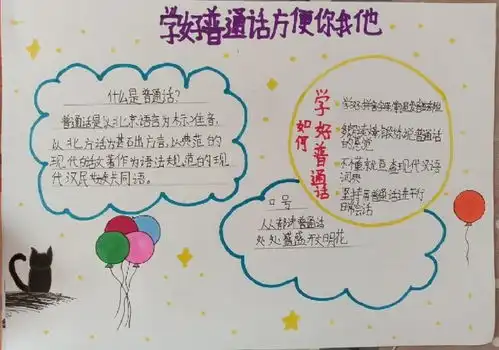 学好普通话方便你我他
什么是普通话?
普通话是以北京语言为标准音,
以北方话为基础方言,以典范的
现代白话文著作为语法规范的现
代汉民族共同语。
如何
学好普通话
学习好拼音
的意识
不懂就直查现代汉语
词典
坚持用普通话进行
日常会话
口号
人人都讲普通话
处处盛开文明花